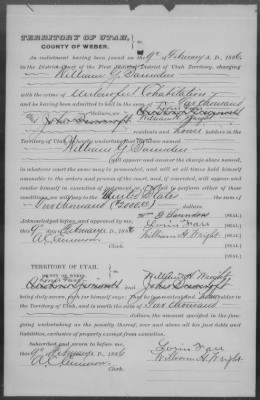 TERRITORY OF UTAH,
COUNTY OF WEBER.
An indictment having been found on the 9th of February A. D., 1886
in the District Court of the First Judicial District of Utah Territory, charging
William G. Saunders
with the crime of Unlawful Cohabitation
and he having been admitted to bail in the sum of Two thousand
William H. Wright
residents and householders in the
Territory of Utah hereby undertake that the above named
William G. Saunders
will appear and answer the charge above named,
in whatever court it may be prosecuted, and will at all times hold
himself amenable to the orders and process of the court, and, if convicted, will appear and
render himself in execution of judgment; or if he fail to perform either of these
conditions, we will pay to the United States the sum of
Two Thousand (2000.00) Dollars.
Acknowledged before and approved by me, this
9th February 1886
Clerk.
W G Saunders [SEAL]
Lorin Farr [SEAL]
William H. Wright [SEAL]
[SEAL]
TERRITORY OF UTAH,
COUNTY OF WEBER
Lorin Farr
William H. Wright
being duly sworn, each for himself says: That he is a resident and householder in the
Territory of Utah, and is worth the sum of Two thousand
dollars, the amount specified in the foregoing
undertaking as the penalty thereof, over and above all his just debts and
liabilities, exclusive of property exempt from execution.
Subscribed and sworn to before me, this
9th February 1886
Clerk.
Lorin Farr
William H. Wright